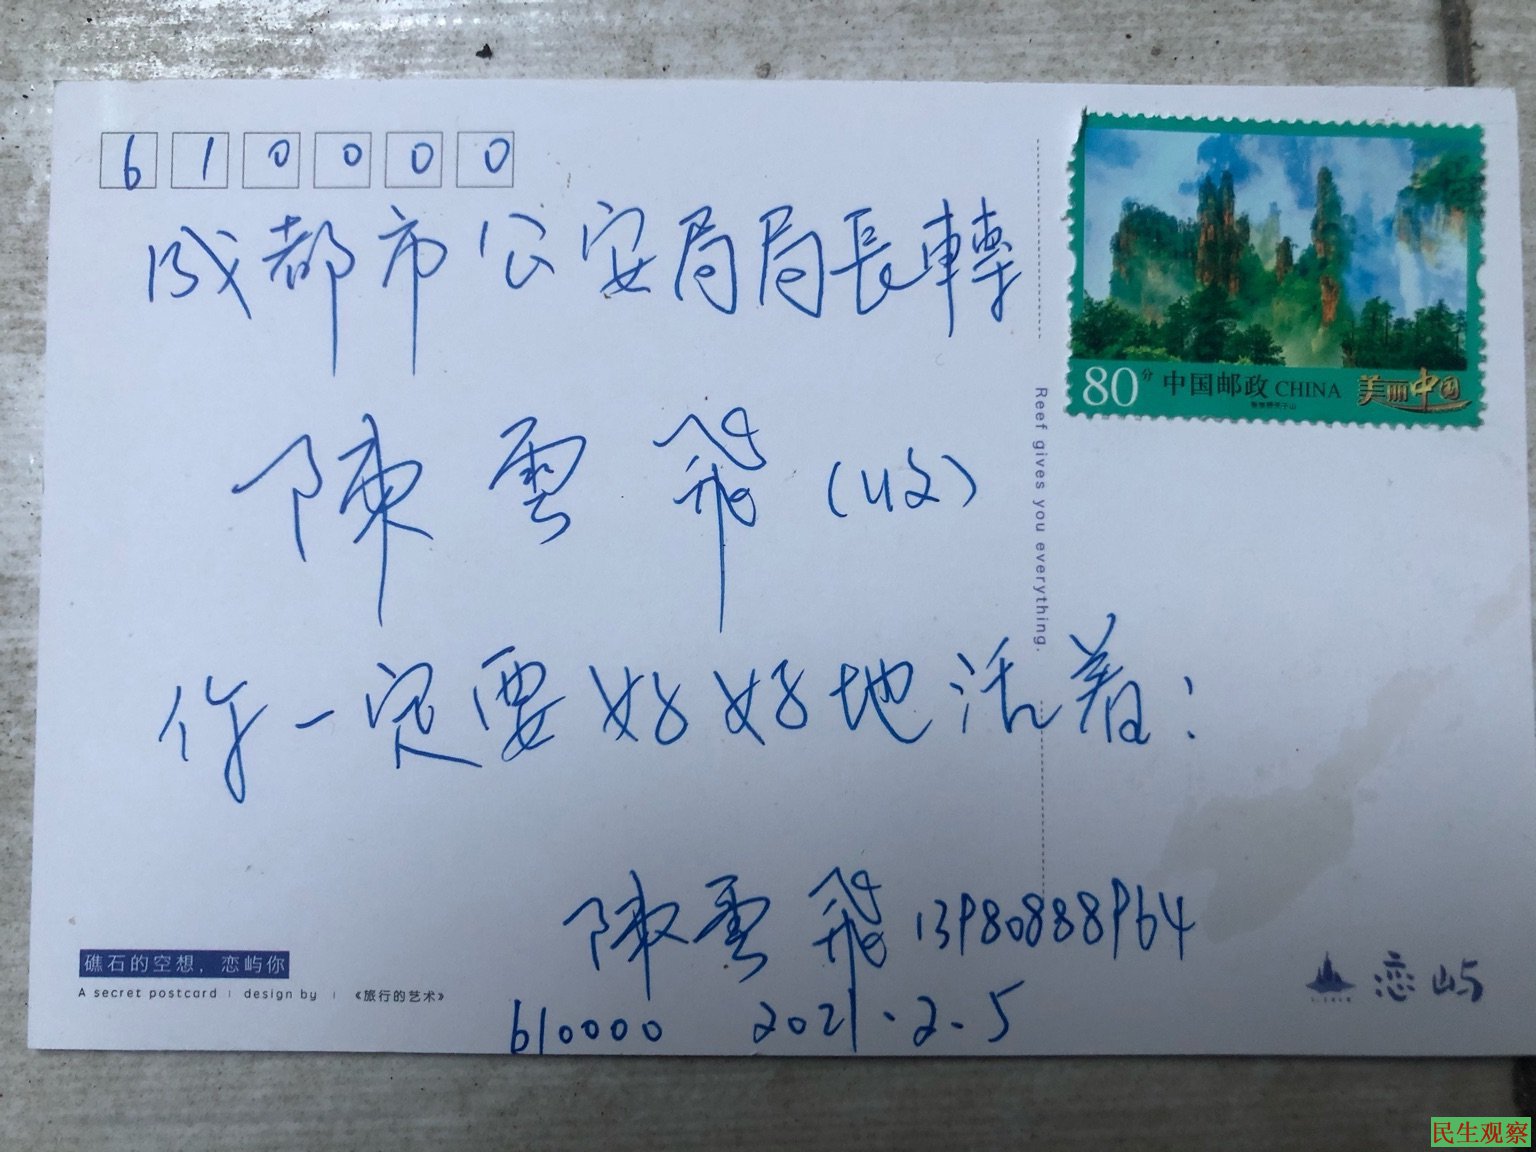 610000
成都市公安局局長轉
陳雲飛（收）
你一定要好好地活着！
陳雲飛 13980888964
610000 2021.2.5
80分 中国邮政 CHINA 美丽中国
Reef gives you everything.
礁石的空想，恋屿你
A secret postcard | design by | 《旅行的艺术》
恋屿
民生观察